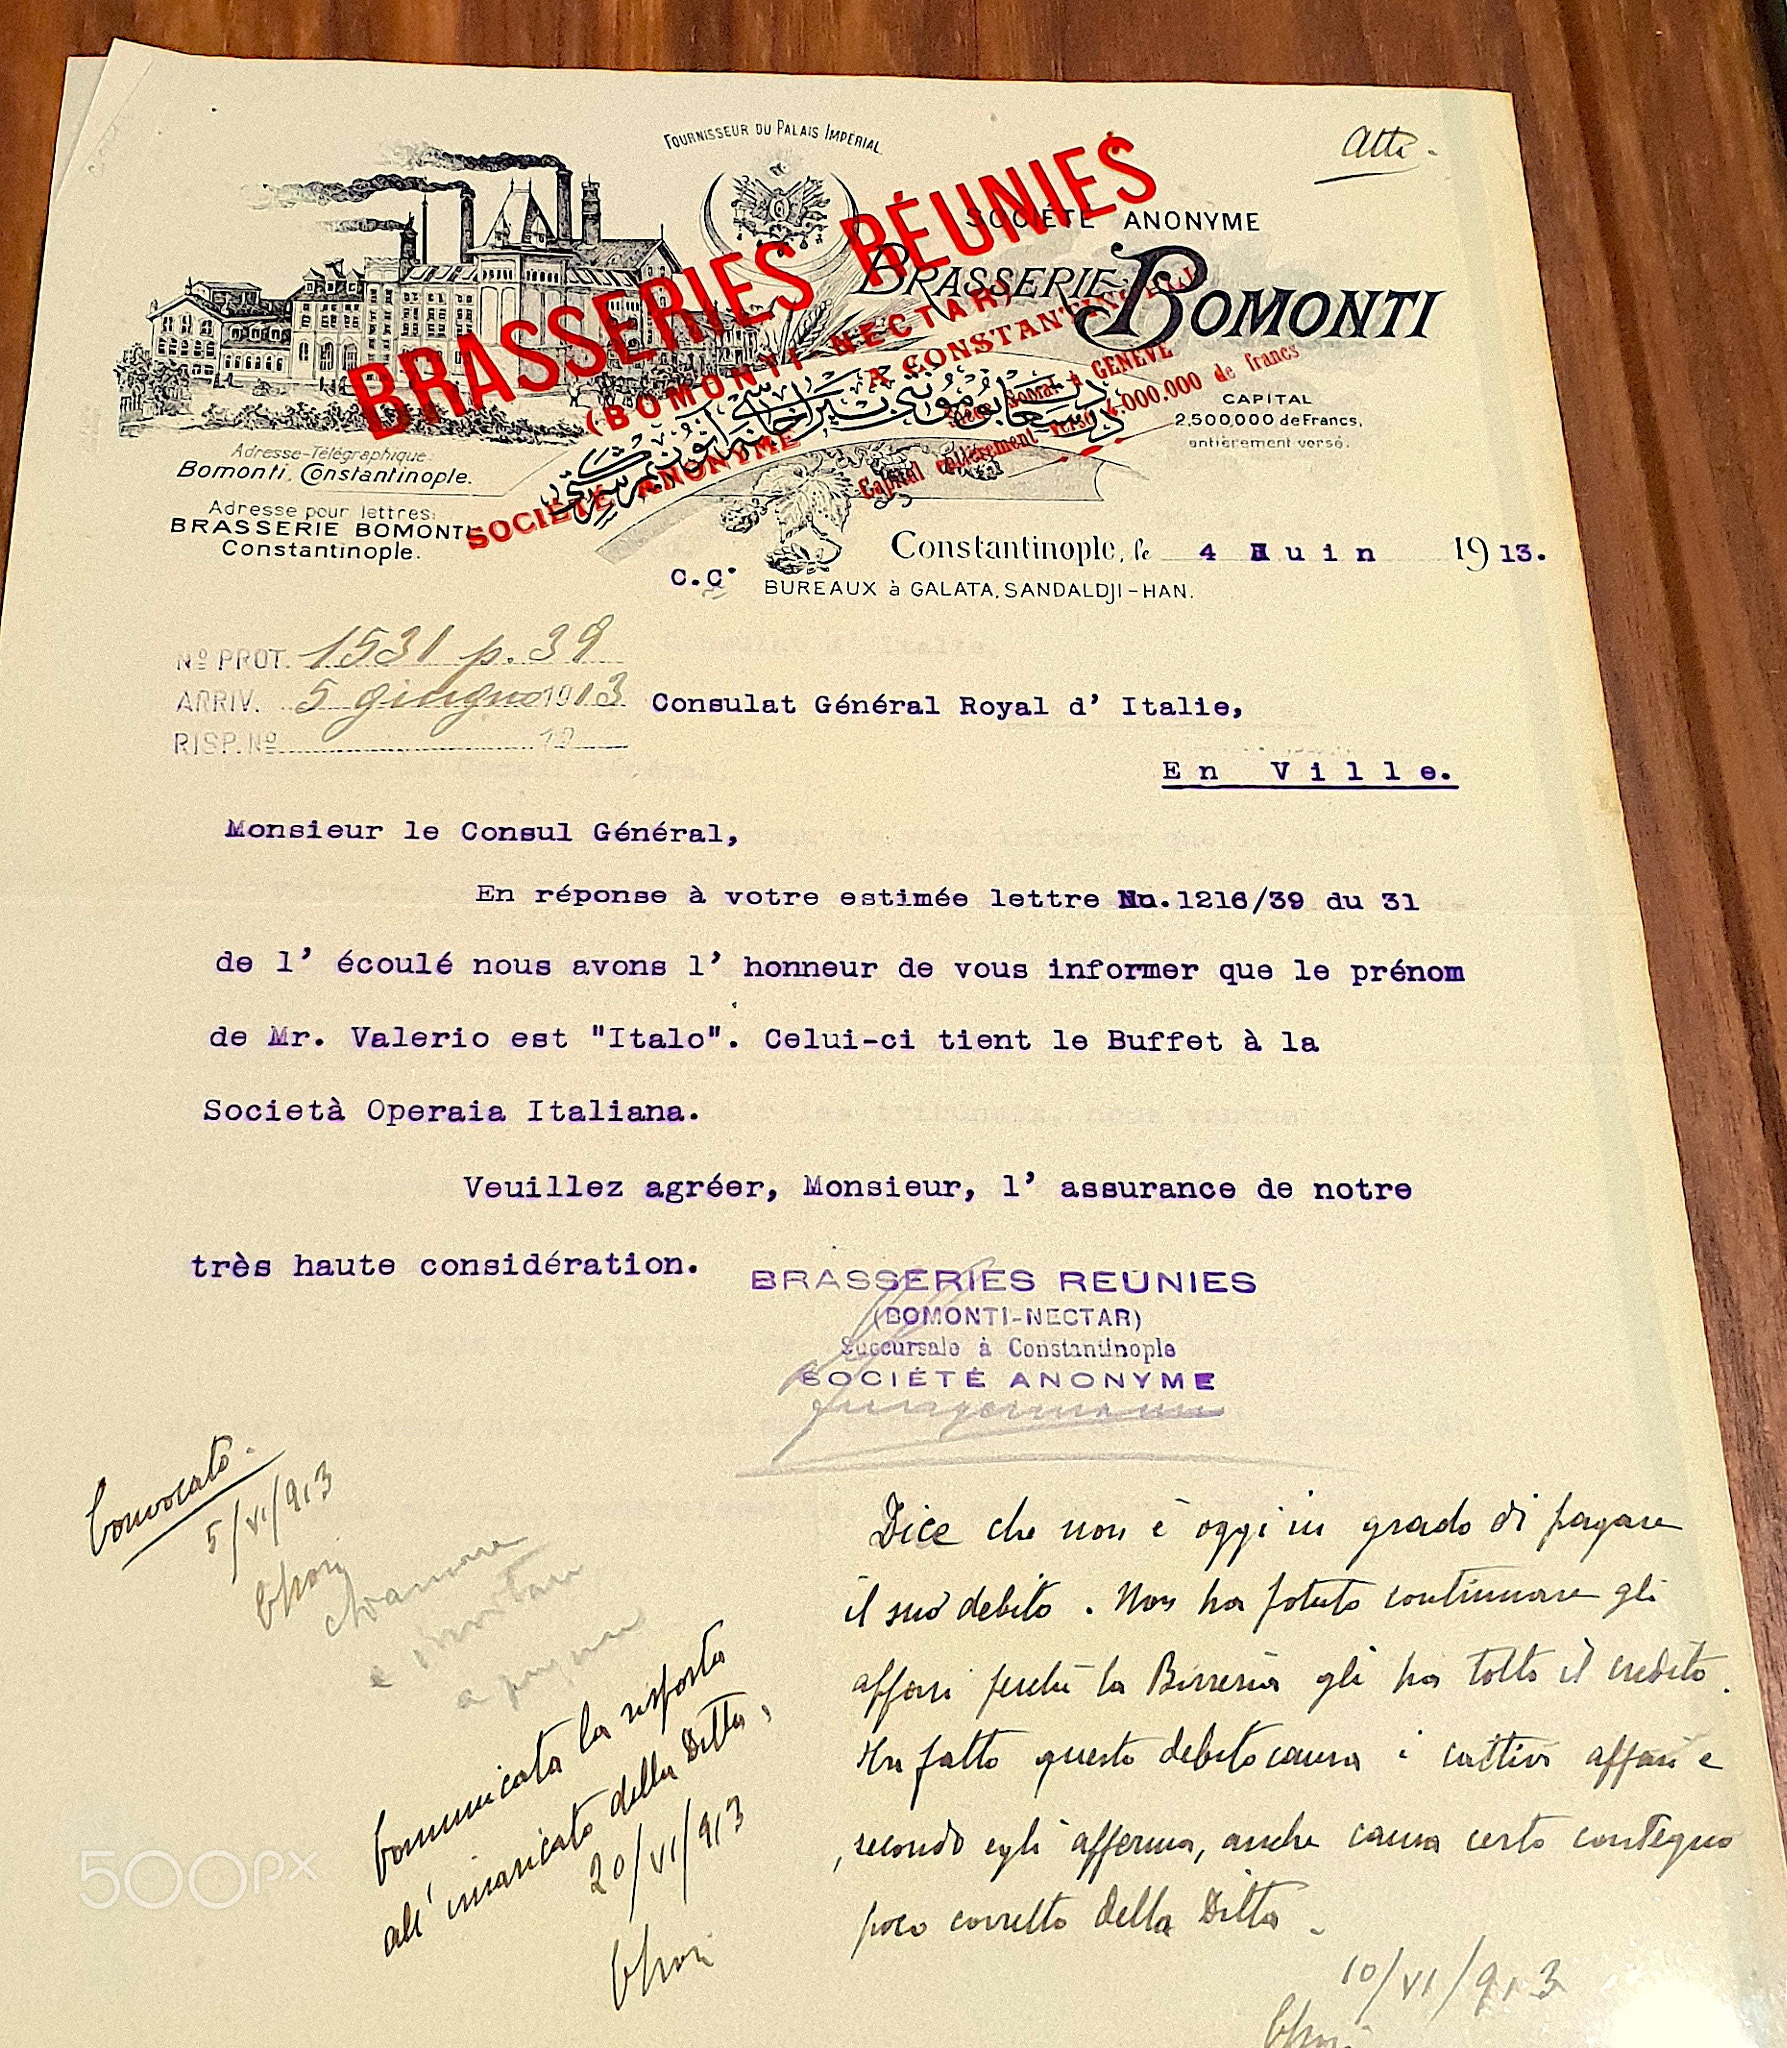 FOURNISSEUR DU PALAIS IMPÉRIAL
Atti.
SOCIÉTÉ ANONYME
BRASSERIE BOMONTI
BRASSERIES RÉUNIES
(BOMONTI-NECTAR)
SOCIÉTÉ ANONYME A CONSTANTINOPLE
GENÈVE
Capital entièrement versé 4.000.000 de francs
CAPITAL
2,500,000 de Francs,
entièrement versé.
Adresse-Télégraphique:
Bomonti, Constantinople.
Adresse pour lettres:
BRASSERIE BOMONTI
Constantinople.
Constantinople, le 4 Huin 1913.
C.C.
BUREAUX à GALATA, SANDALDJI-HAN.
No PROT. 1531 p. 39
ARRIV. 5 giugno 1913
RISP. No 19
Consulat Général Royal d' Italie,
En Ville.
Monsieur le Consul Général,
En réponse à votre estimée lettre No.1216/39 du 31
de l' écoulé nous avons l' honneur de vous informer que le prénom
de Mr. Valerio est "Italo". Celui-ci tient le Buffet à la
Società Operaia Italiana.
Veuillez agréer, Monsieur, l' assurance de notre
très haute considération.
BRASSERIES REUNIES
(BOMONTI-NECTAR)
Succursale à Constantinople
SOCIÉTÉ ANONYME
Convocato.
5/VI/913
chiamare
e invitare
a pagare
Comunicata la risposta
all' incaricato della Ditta,
20/VI/913
Dice che non è oggi in grado di pagare
il suo debito. Non ha potuto continuare gli
affari perchè la Birreria gli ha tolto il credito.
Ha fatto questo debito causa i cattivi affari e
, secondo egli afferma, anche causa certo contegno
poco corretto della Ditta.
10/VI/913
500px